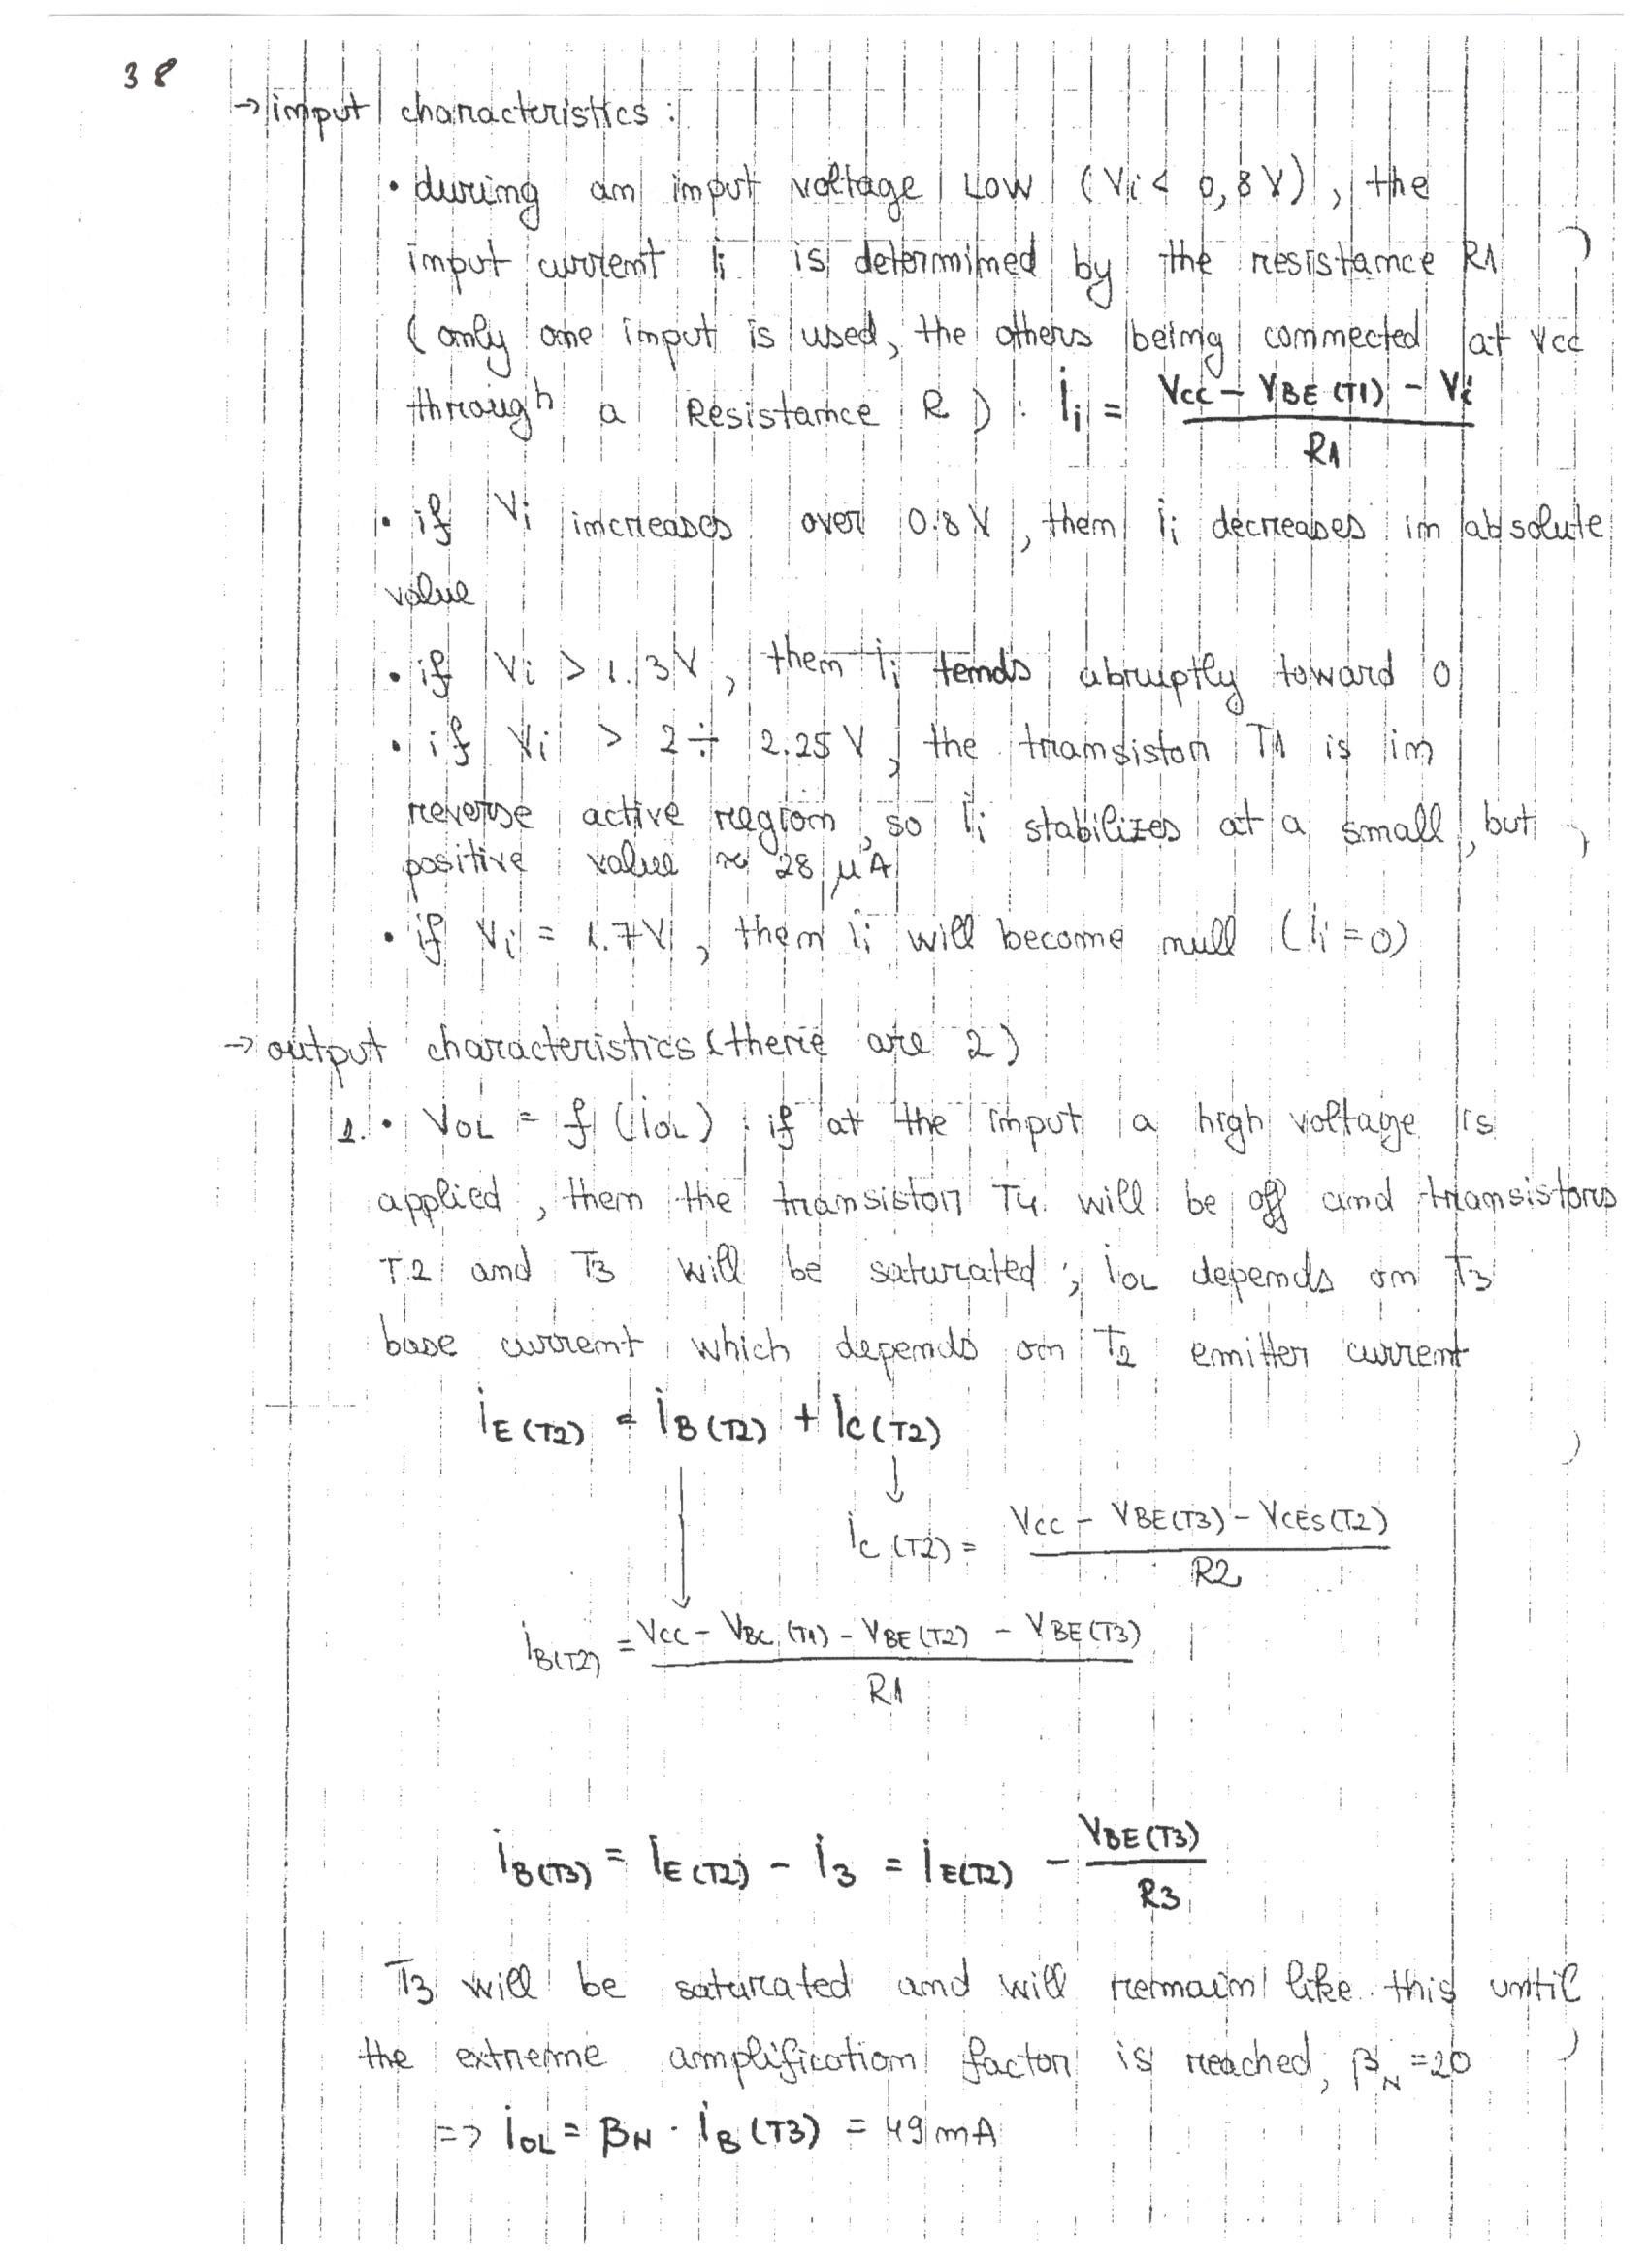 38
→ input characteristics :
• during an input voltage Low (Vi < 0,8 V), the
input current Ii is determined by the resistance R1
(only one input is used, the others being connected at Vcc
through a Resistance R) : Ii = (Vcc - VBE(T1) - Vi) / R1
• if Vi increases over 0.8 V, then Ii decreases in absolute
value
• if Vi > 1.3V, then Ii tends abruptly toward 0
• if Vi > 2 ÷ 2.25 V, the transistor T1 is in
reverse active region, so Ii stabilizes at a small, but
positive value ≈ 28 μA
• if Vi = 1.7V, then Ii will become null (Ii = 0)
→ output characteristics (there are 2)
1. • VOL = f (iOL) : if at the input a high voltage is
applied, then the transistor T4 will be off and transistors
T2 and T3 will be saturated ; IOL depends on T3
base current which depends on T2 emitter current
IE(T2) = IB(T2) + IC(T2)
↓
IC(T2) = (Vcc - VBE(T3) - VCES(T2)) / R2
↓
IB(T2) = (Vcc - VBC(T1) - VBE(T2) - VBE(T3)) / R1
IB(T3) = IE(T2) - I3 = IE(T2) - VBE(T3) / R3
T3 will be saturated and will remain like this until
the extreme amplification factor is reached, βN = 20
=> IOL = βN · IB(T3) = 49 mA